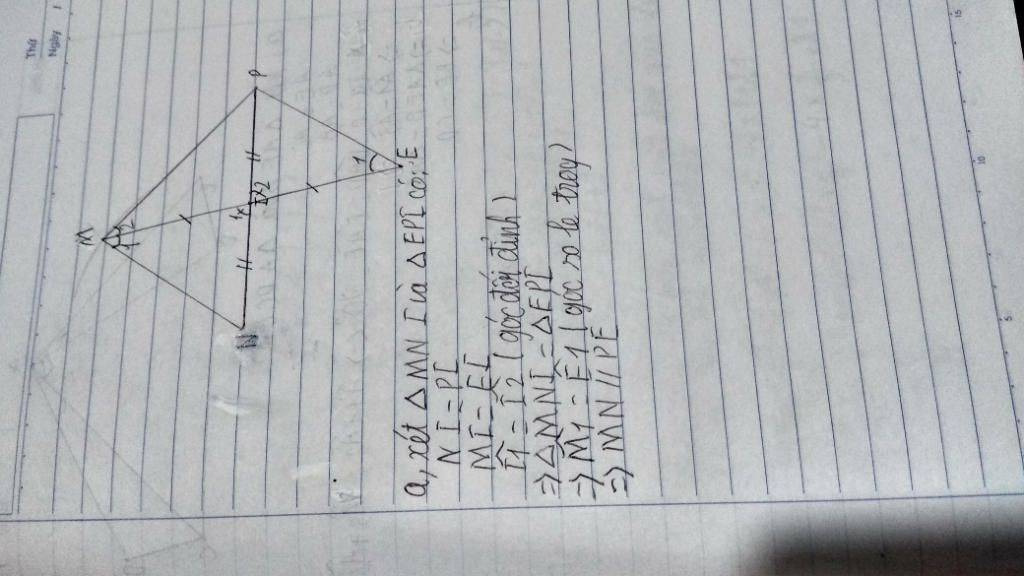 Thứ
Ngày
M
1 2
N
P
I 2
1
E
a, xét △ MNI và △ EPI có:
NI = PI
MI = EI
Î1 = Î2 (góc đối đỉnh)
=> △MNI = △EPI
=> M̂1 = Ê1 (góc so le trog)
=> MN // PE
5
10
15